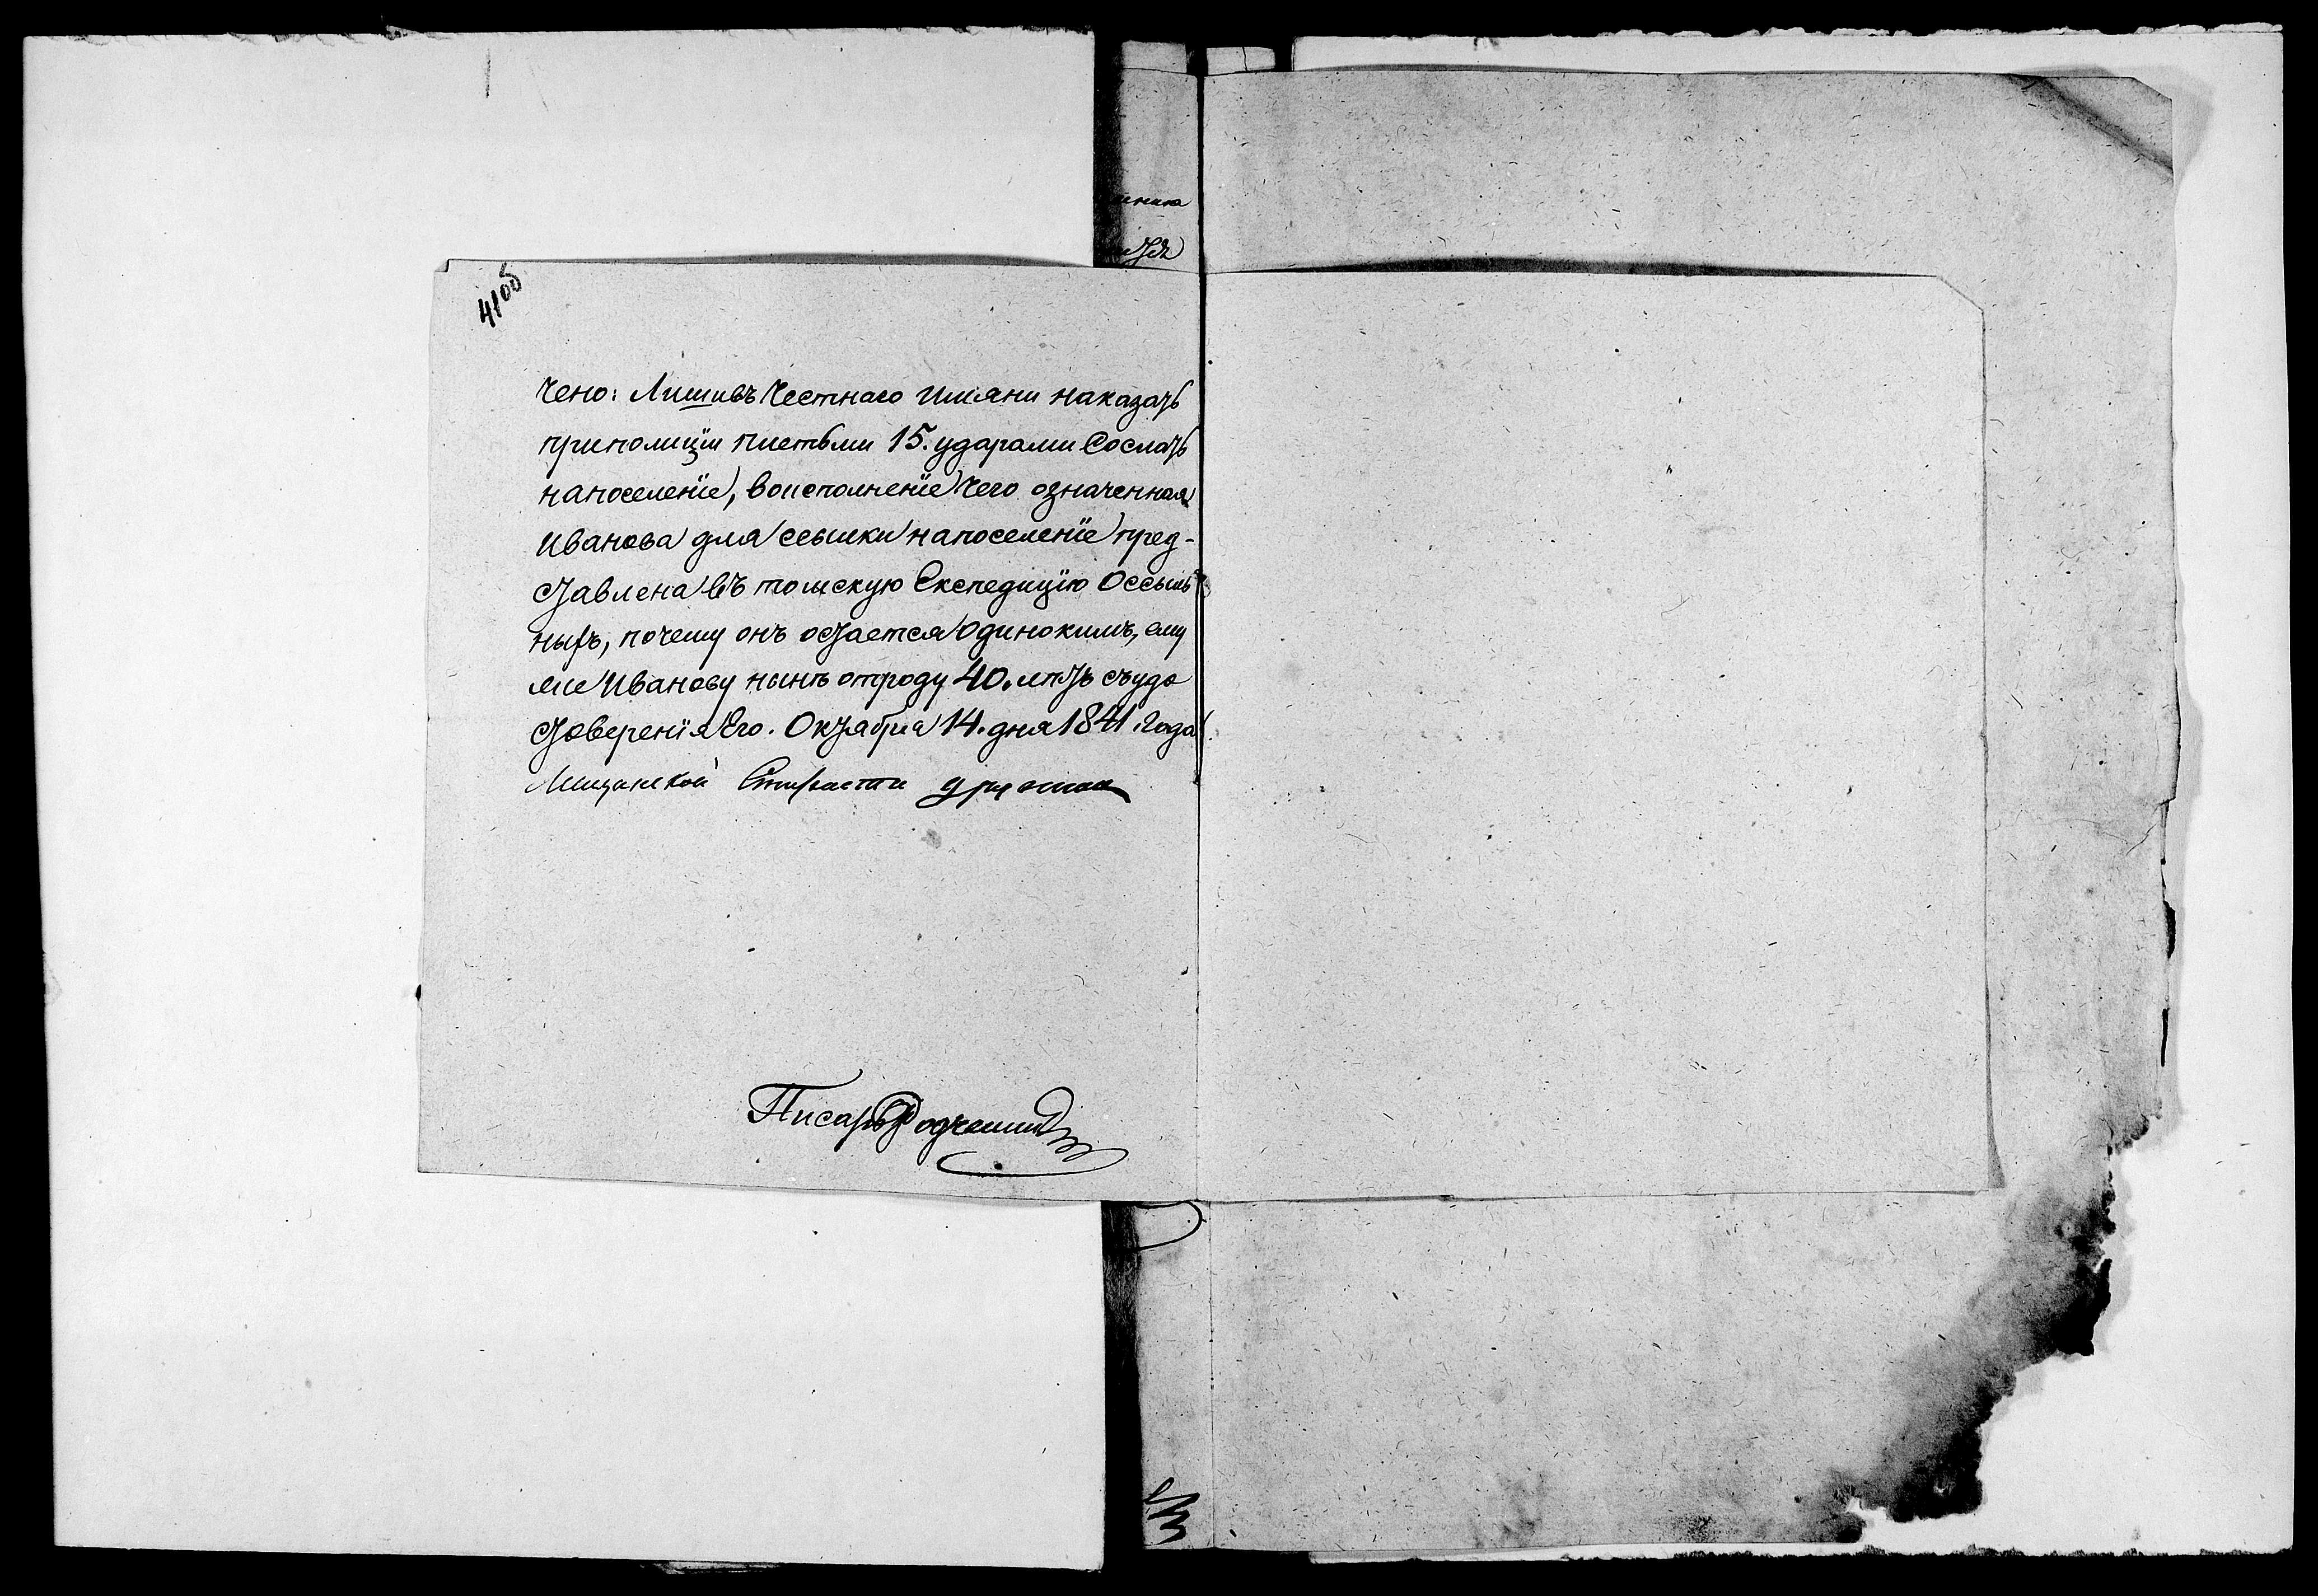 41об
чено: Лишивъ Честнаго Имяни наказать
приполицiи плетьми 15. ударами Сослать
напоселенiе, воисполненiе Чего означенная
Иванова для ссылки напоселенiе пред-
ставлена въ томскую Експедицiю Оссыль
ныхъ, почему онъ остается одинокимъ, ему
же Иванову нынѣ отроду 40. лѣтъ съудо
стоверенiя Его. Октября 14. дня 1841. Года
Мещанской Староста
Писарь